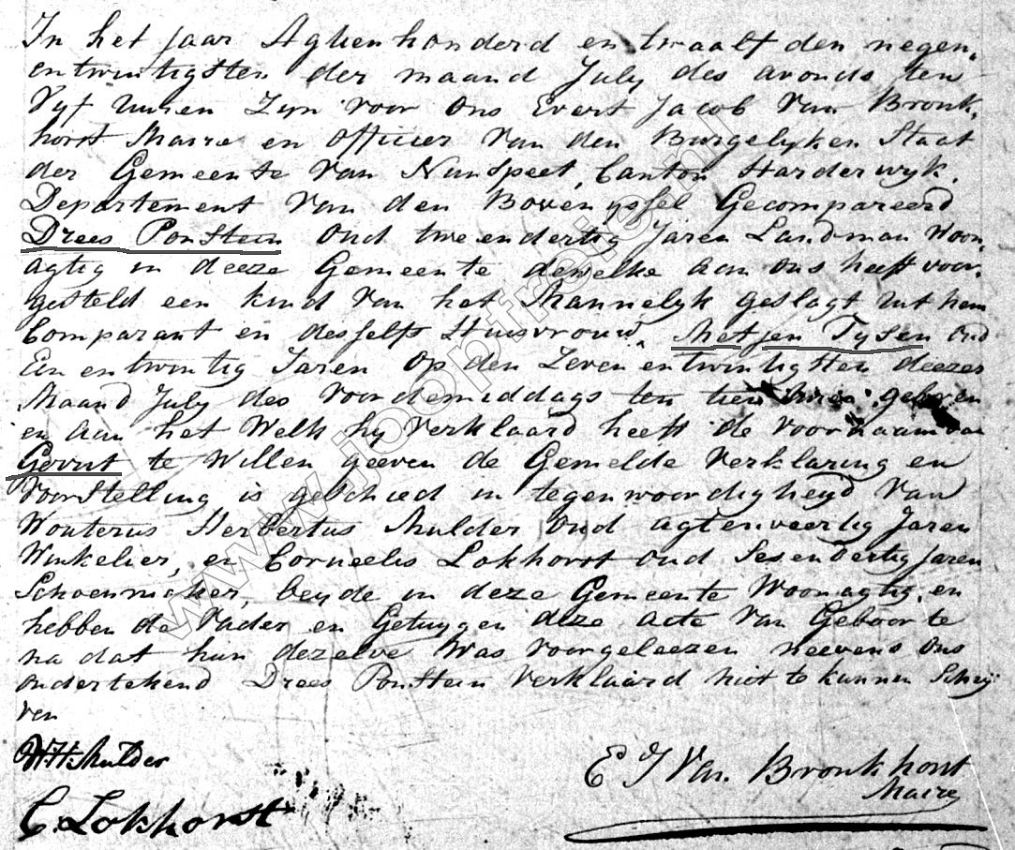 In het jaar Agtienhonderd en twaalf den negen,
entwintigsten der maand July des avonds ten
Vyf Uuren Zyn voor Ons Evert Jacob Van Bronk,
horst Maire en Officier Van den Burgelyken Staat
der Gemeente Van Nunspeet, Canton Harderwyk,
Departement Van den Bovenyssel Gecompareerd
Drees Ponstein Oud tweendertig Jaren Landman Woon,
agtig in deeze Gemeente dewelke aan ons heeft voor,
gesteld een kind Van het Mannelyk geslagt uit hem
Comparant en desselfs Huisvrouw, Metjen Tysen Oud
Een entwintig Jaren Op den Zeven entwintigsten deezer
Maand July des Voordemiddags ten tien Uren geboren
en aan het Welk hy Verklaard heeft de Voornaam van
Gerrit te Willen geeven de Gemelde Verklaring en
Voorstelling is geschied in tegenwoordigheyd Van
Wouterus Herbertus Mulder Oud agtenveertig Jaren
Winkelier, en Cornelis Lokhorst Oud Sesendertig Jaren
Schoenmaker, beyde in deze Gemeente Woonagtig, en
hebben de Vader en Getuygen deze acte Van Geboorte
na dat hun dezelve Was Voorgeleezen neevens Ons
ondertekend Drees Ponstein Verklaard niet te kunnen Schry
ven
WH Mulder
E J Van Bronkhorst
Maire
C. Lokhorst
www.joopfreie.nl